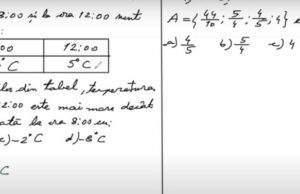 8:00 și la ora 12:00 sunt
:00 12:00
°C 5°C
din tabel, temperatura
12:00 este mai mare decât
la ora 8:00 cu:
c) -2°C d) -8°C
C
A = {44/10; 5/4; 4/5; 4}
a) 4/5 b) 5/4 c) 4